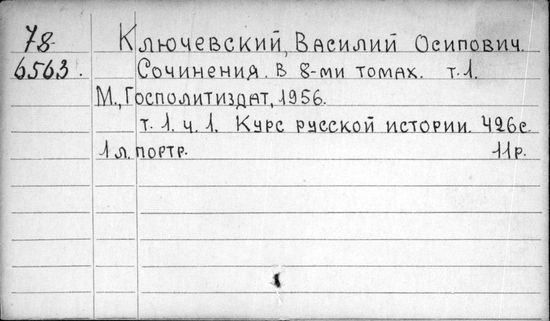 78 Ключевский, Василий Осипович.
6563. Сочинения. В 8-ми томах. т.1.
М., Госполитиздат, 1956.
т. 1. ч. 1. Курс русской истории. 426с.
1 л. портр. 11р.